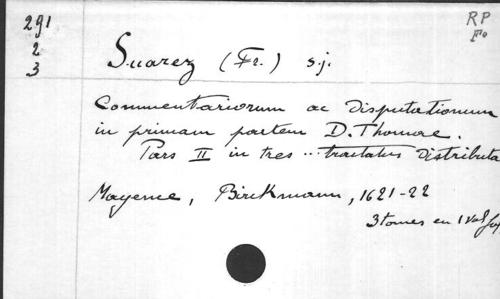 291
2
3
RP
Fo
Suarez (Fr.) s.j.
Commentariorum ac disputationum
in primam partem D. Thomae.
Pars II in tres ... tractatus distributa
Mayence, Birckmann, 1621-22
3 tomes en 1 vol fo